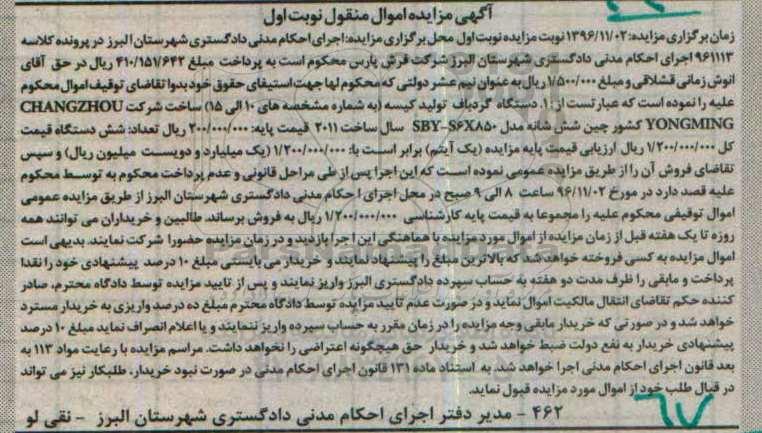 آگهی مزایده اموال منقول نوبت اول
زمان برگزاری مزایده: ۱۳۹۶/۱۱/۰۲ نوبت مزایده نوبت اول محل برگزاری مزایده: اجرای احکام مدنی دادگستری شهرستان البرز در پرونده کلاسه
۹۶۱۱۱۳ اجرای احکام مدنی دادگستری شهرستان البرز شرکت فرش پارس محکوم است به پرداخت مبلغ ۴۱۰/۱۵۱/۶۴۲ ریال در حق آقای
انوش زمانی قشلاقی و مبلغ ۱/۵۰۰/۰۰۰ ریال به عنوان نیم عشر دولتی که محکوم لها جهت استیفای حقوق خود بدوا تقاضای توقیف اموال محکوم
علیه را نموده است که عبارتست از: ۱. دستگاه گردباف تولید کیسه (به شماره مشخصه های ۱۰ الی ۱۵) ساخت شرکت CHANGZHOU
YONGMING کشور چین شش شانه مدل SBY-S۶X۸۵۰ سال ساخت ۲۰۱۱ قیمت پایه: ۲۰۰/۰۰۰/۰۰۰ ریال تعداد: شش دستگاه قیمت
کل ۱/۲۰۰/۰۰۰/۰۰۰ ریال ارزیابی قیمت پایه مزایده (یک آیتم) برابر است با: ۱/۲۰۰/۰۰۰/۰۰۰ (یک میلیارد و دویست میلیون ریال) و سپس
تقاضای فروش آن را از طریق مزایده عمومی نموده است که این اجرا پس از طی مراحل قانونی و عدم پرداخت محکوم به توسط محکوم
علیه قصد دارد در مورخ ۹۶/۱۱/۰۲ ساعت ۸ الی ۹ صبح در محل اجرای احکام مدنی دادگستری شهرستان البرز از طریق مزایده عمومی
اموال توقیفی محکوم علیه را مجموعا به قیمت پایه کارشناسی ۱/۲۰۰/۰۰۰/۰۰۰ ریال به فروش برساند. طالبین و خریداران می توانند همه
روزه تا یک هفته قبل از زمان مزایده از اموال مورد مزایده با هماهنگی این اجرا بازدید و در زمان مزایده حضورا شرکت نمایند. بدیهی است
اموال مزایده به کسی فروخته خواهد شد که بالاترین مبلغ را پیشنهاد نمایند و خریدار می بایستی مبلغ ۱۰ درصد پیشنهادی خود را نقدا
پرداخت و مابقی را ظرف مدت دو هفته به حساب سپرده دادگستری البرز واریز نمایند و پس از تایید مزایده توسط دادگاه محترم، صادر
کننده حکم تقاضای انتقال مالکیت اموال نماید و در صورت عدم تایید مزایده توسط دادگاه محترم مبلغ ده درصد واریزی به خریدار مسترد
خواهد شد و در صورتی که خریدار مابقی وجه مزایده را در زمان مقرر به حساب سپرده واریز ننمایند و یا اعلام انصراف نماید مبلغ ۱۰ درصد
پیشنهادی خریدار به نفع دولت ضبط خواهد شد و خریدار حق هیچگونه اعتراضی را نخواهد داشت. مراسم مزایده با رعایت مواد ۱۱۳ به
بعد قانون اجرای احکام مدنی اجرا خواهد شد. به استناد ماده ۱۳۱ قانون اجرای احکام مدنی در صورت نبود خریدار، طلبکار نیز می تواند
در قبال طلب خود از اموال مورد مزایده قبول نماید.
۴۶۲ - مدیر دفتر اجرای احکام مدنی دادگستری شهرستان البرز - نقی لو
۶۷